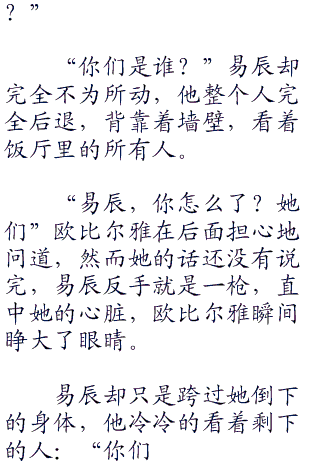 ？”
“你们是谁？”易辰却
完全不为所动，他整个人完
全后退，背靠着墙壁，看着
饭厅里的所有人。
“易辰，你怎么了？她
们”欧比尔雅在后面担心地
问道，然而她的话还没有说
完，易辰反手就是一枪，直
中她的心脏，欧比尔雅瞬间
睁大了眼睛。
易辰却只是跨过她倒下
的身体，他冷冷的看着剩下
的人：“你们